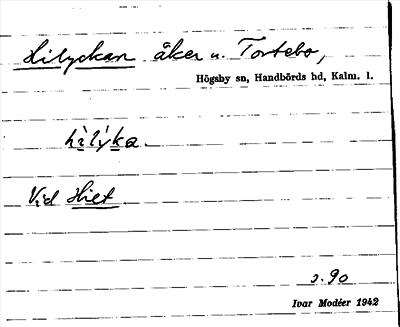 Hilyckan åker u. Tortebo,
Högsby sn, Handbörds hd, Kalm. l.
hìlýka.
Vid Hiet
s. 90
Ivar Modéer 1942